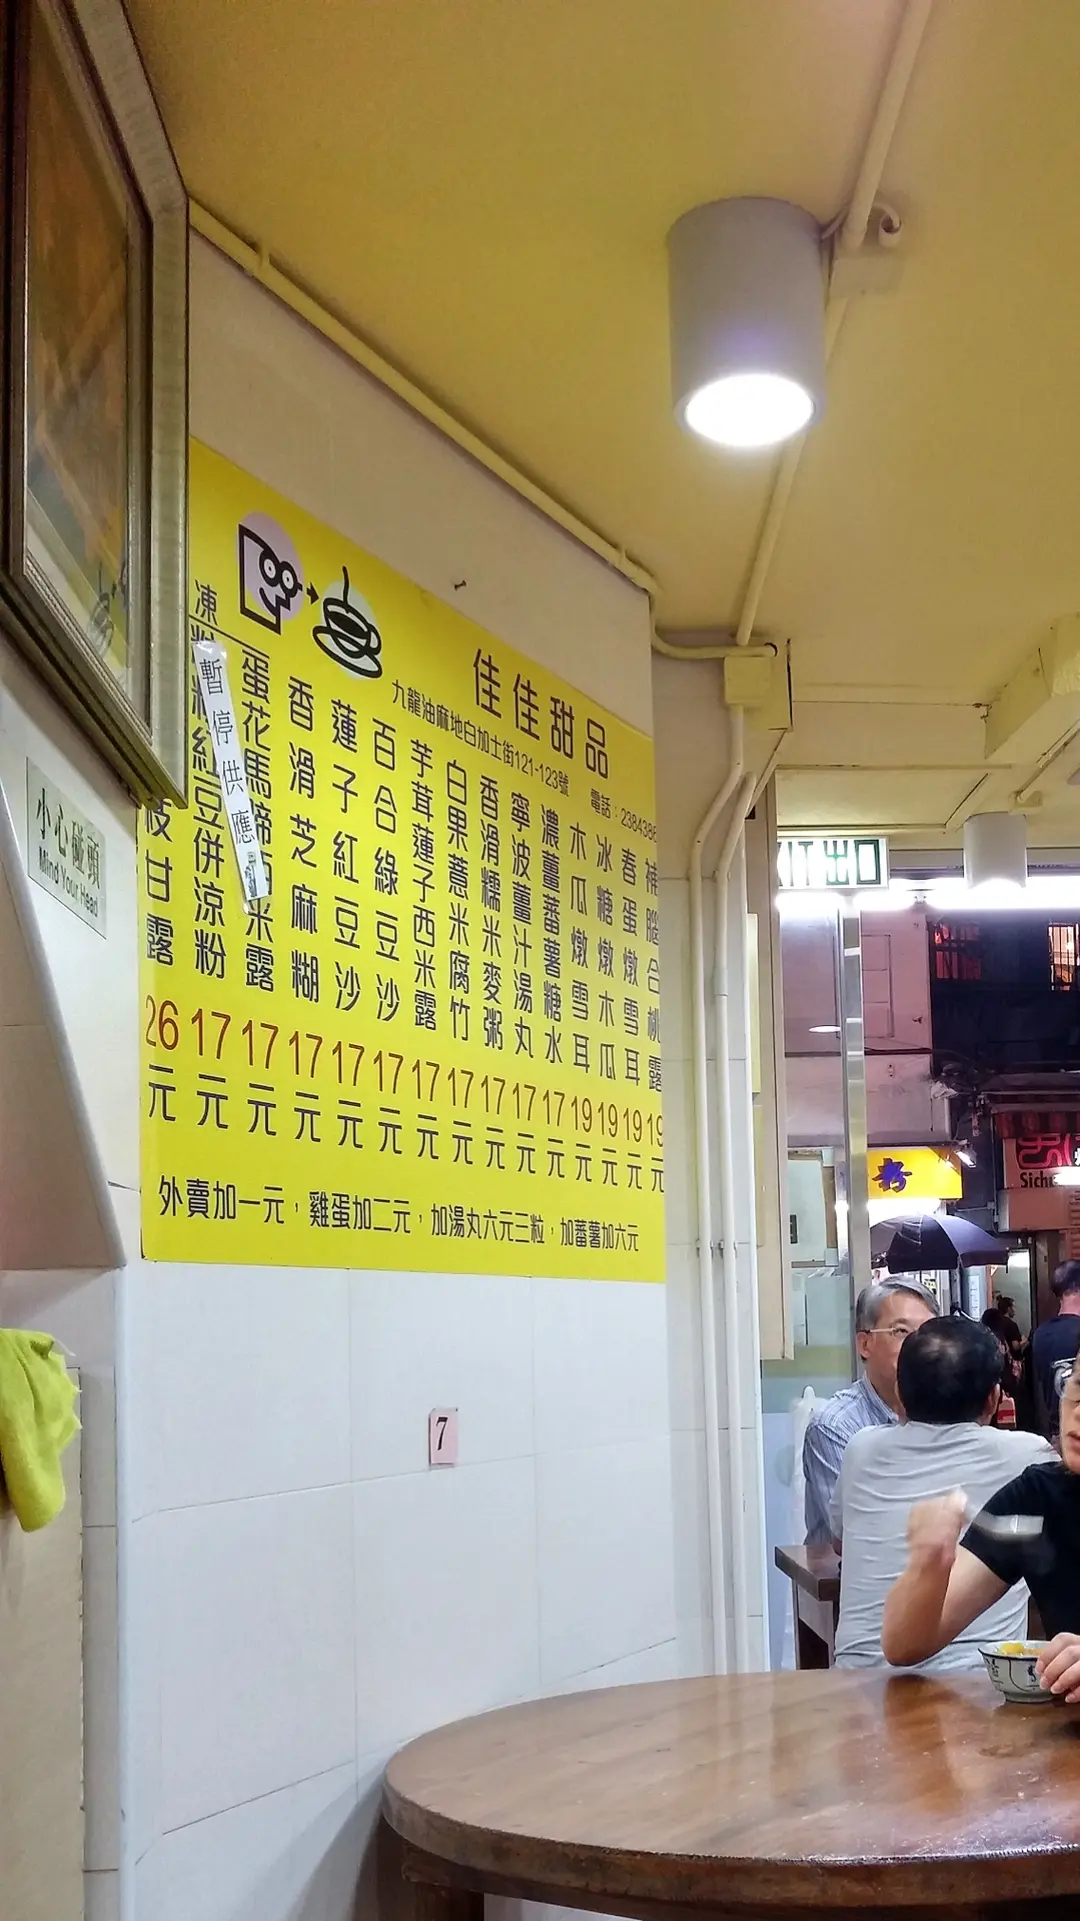 佳佳甜品
九龍油麻地白加士街121-123號 電話：2384386
補腦合桃露 19元
春蛋燉雪耳 19元
冰糖燉木瓜 19元
木瓜燉雪耳 19元
濃薑蕃薯糖水 17元
寧波薑汁湯丸 17元
香滑糯米麥粥 17元
白果薏米腐竹 17元
芋茸蓮子西米露 17元
百合綠豆沙 17元
蓮子紅豆沙 17元
香滑芝麻糊 17元
蛋花馬蹄西米露 17元
凍
紅豆併涼粉 17元
枝甘露 26元
暫停供應
外賣加一元，雞蛋加二元，加湯丸六元三粒，加蕃薯加六元
小心碰頭
Mind Your Head
7
EXIT 出口
粉
Sich